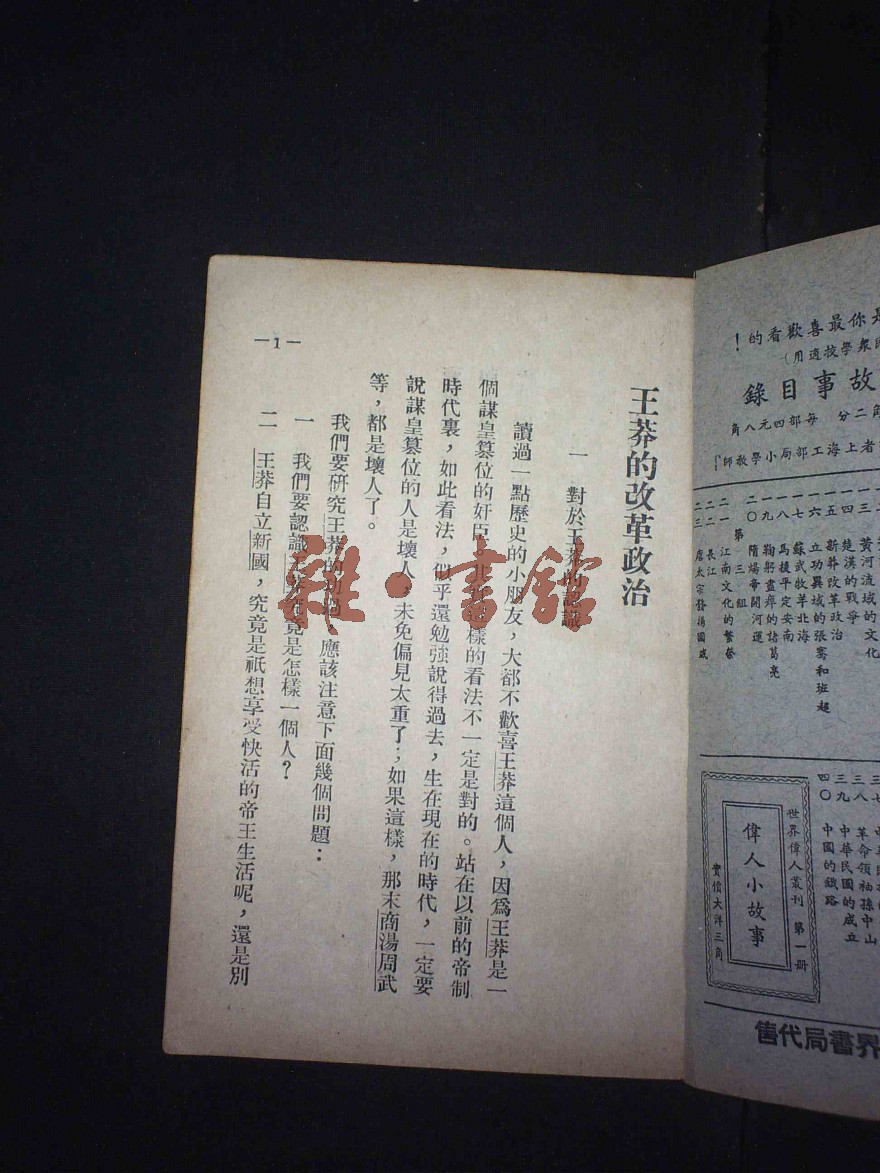 是你最喜歡看的！
民衆學校適用）
故事目錄
角二分　每部四元八角
者上海工部局小學教師
黃河流域的文化
一四　楚漢的戰爭
一五　新莽改革政治
一六　立功異域的張騫和班超
一七　蘇武牧羊北海
一八　馬援平定安南
一九　鞠躬盡瘁的諸葛亮
二〇　隋煬帝開河運
第三組
二一　江南文化的繁榮
二二　長江
二三　唐太宗發揚國威
三八　革命領袖孫中山
三九　中華民國的成立
四〇　中國的鐵路
世界偉人叢刊　第一册
偉人小故事
實價大洋三角
界書局代售
王莽的改革政治
一　對於王莽的認識
讀過一點歷史的小朋友，大都不歡喜王莽這個人，因爲王莽是一
個謀皇篡位的奸臣。其實這樣的看法不一定是對的。站在以前的帝制
時代裏，如此看法，似乎還勉強說得過去，生在現在的時代，一定要
說謀皇篡位的人是壞人，未免偏見太重了；如果這樣，那末商湯周武
等，都是壞人了。
我們要研究王莽的功過，應該注意下面幾個問題：
一　我們要認識王莽究竟是怎樣一個人？
二　王莽自立新國，究竟是祇想享受快活的帝王生活呢，還是別
—1—
雜·書館